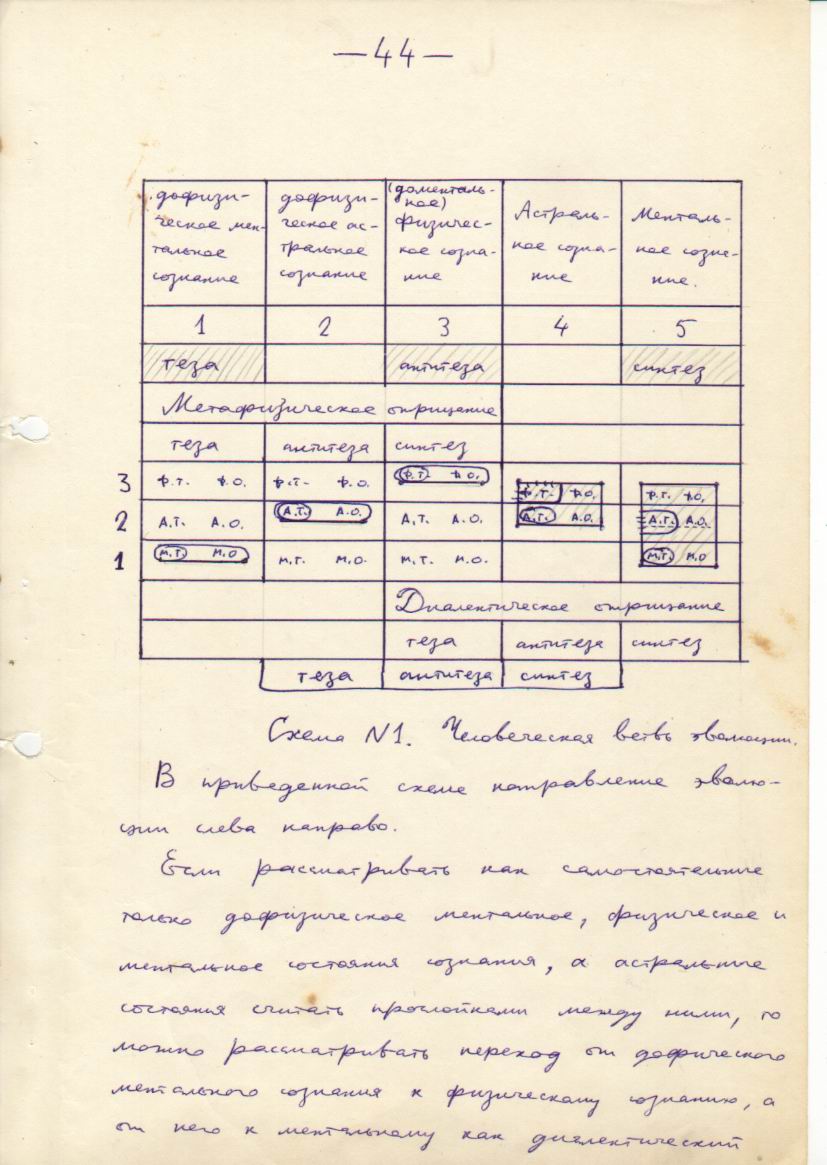 —44—
дофизи- дофизи- (доменталь- Асталь- Менталь-
ческое мен- ческое ас- ное) ное созна- ное созне-
тальное тральное физичес- ние ние.
сознание сознание кое созна-
ние
1 2 3 4 5
теза антитеза синтез
Метафизическое отрицание
теза антитеза синтез
3 ф.т. ф.о. ф.т. ф.о. ф.т. ф.о. ф.т. ф.о. ф.т. ф.о.
2 А.Т. А.О. А.Т. А.О. А.Т. А.О. А.Т. А.О. А.Т. А.О.
1 М.Т. М.О М.Т. М.О. М.Т. М.О. М.Т. М.О
Диалектическое отрицание
теза антитеза синтез
теза антитеза синтез
Схема N1. Человеческая ветвь эволюции.
В приведенной схеме направление эволю-
ции слева направо.
Если рассматривать как самостоятельные
только дофизическое ментальное, физическое и
ментальное состояния сознания, а астральные
состояния считать прослойками между ними, то
можно рассматривать переход от дофического
ментального сознания к физическому сознанию, а
от него к ментальному как диалектический